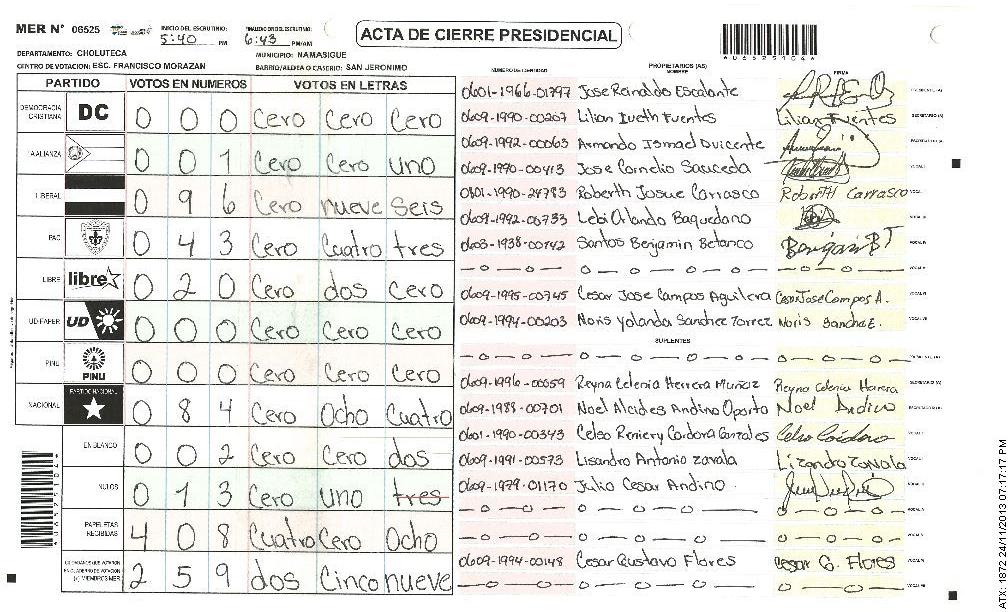 MER N° 06525 INICIO DEL ESCRUTINIO: 5:40 PM FINALIZACION DEL ESCRUTINIO: 6:43 PM/AM
ACTA DE CIERRE PRESIDENCIAL
DEPARTAMENTO: CHOLUTECA MUNICIPIO: NAMASIGUE
CENTRO DE VOTACION: ESC. FRANCISCO MORAZAN BARRIO/ALDEA O CASERIO: SAN JERONIMO
PARTIDO VOTOS EN NUMEROS VOTOS EN LETRAS
DEMOCRACIA CRISTIANA DC 0 0 0 Cero Cero Cero
LA ALIANZA 0 0 1 Cero Cero uno
LIBERAL 0 9 6 Cero nueve Seis
PAC 0 4 3 Cero Cuatro tres
LIBRE libre 0 2 0 Cero dos cero
UD-FAPER UD 0 0 0 Cero Cero Cero
PINU PINU 0 0 0 Cero Cero Cero
NACIONAL PARTIDO NACIONAL 0 8 4 Cero Ocho Cuatro
EN BLANCO 0 0 2 Cero Cero dos
NULOS 0 1 3 Cero uno tres
PAPELETAS RECIBIDAS 4 0 8 Cuatro Cero Ocho
CIUDADANOS QUE VOTARON EN CUADERNO DE VOTACION (+) MIEMBROS MER 2 5 9 dos Cinco nueve
NUMERO DE IDENTIDAD PROPIETARIOS (AS) NOMBRE FIRMA
0601-1966-01797 Jose Reinaldo Escalante PRESIDENTE (A)
0609-1990-00207 Lilian Iveth Fuentes Lilian Fuentes SECRETARIO (A)
0609-1992-00063 Armando Ismael Dvicente
0609-1990-00413 Jose Cornelio Sauceda VOCAL I
0801-1990-24783 Roberth Josue Carrasco Roberth Carrasco
0609-1992-00733 Lebi Orlando Baquedano Lebi
0603-1938-00142 Santos Benjamin Betanco Benjamin B
0609-1995-00745 Cesar Jose Campos Aguilera Cesar Jose Campos A.
0609-1994-00203 Noris Yolanda Sanchez Torrez Noris Sanchez
SUPLENTES
PRESIDENTE (A)
0609-1996-00059 Reyna Celenia Herrera Muñoz Reyna Celenia Herrera SECRETARIO (A)
0609-1988-00701 Noel Alcides Andino Oporto Noel Andino ESCRUTADOR (A)
0601-1990-00343 Celso Reniery Cordova Canzales Celso Cordova
0609-1991-00573 Lisandro Antonio Zavala Lizandro Zavala
0609-1979-01170 Julio Cesar Andino
0609-1994-00148 Cesar Gustavo Flores Cesar G. Flores
ATX: 1872 24/11/2013 07:17:17 PM